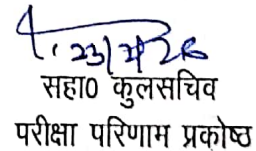 सहा0 कुलसचिव
परीक्षा परिणाम प्रकोष्ठ